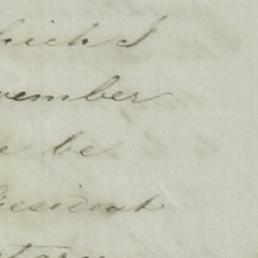 which I
vember
e be
President